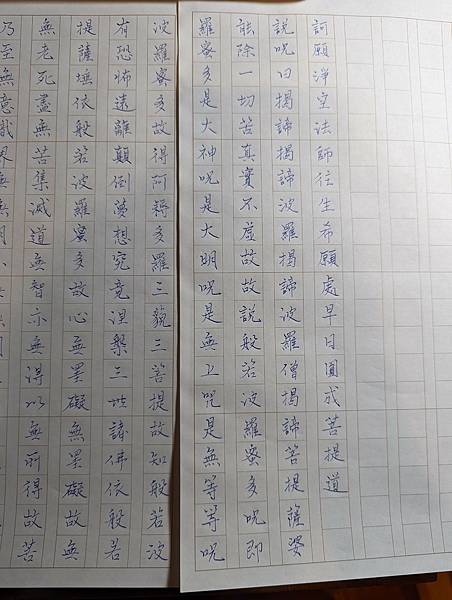 訶願淨空法師往生希願處早日圓成菩提道
說呪曰揭諦揭諦波羅揭諦波羅僧揭諦菩提薩婆
能除一切苦真實不虛故故說般若波羅蜜多呪即
羅蜜多是大神呪是大明呪是無上呪是無等等呪
波羅蜜多故得阿耨多羅三藐三菩提故知般若波
有恐怖遠離顛倒夢想究竟涅槃三世諸佛依般若
提薩埵依般若波羅蜜多故心無罣礙無罣礙故無
無老死盡無苦集滅道無智亦無得以無所得故菩
乃至無意識界無無明